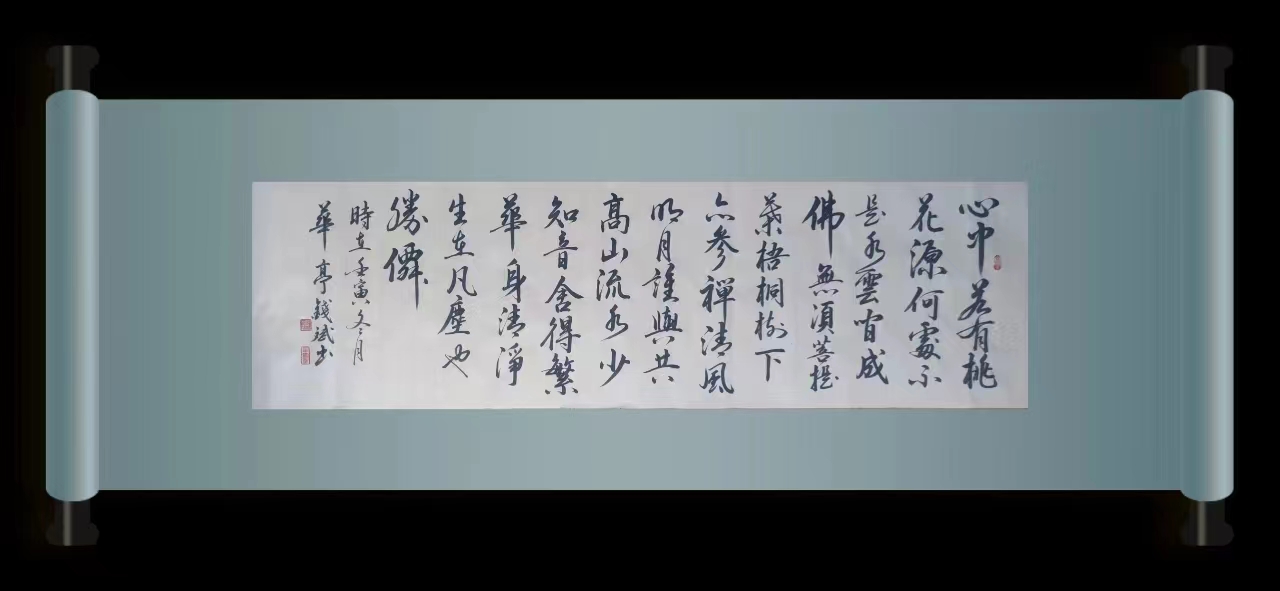 心中若有桃
花源何處不
是水雲間成
佛無須菩提
葉梧桐樹下
亦參禪清風
明月誰與共
高山流水少
知音舍得繁
華身清淨
生在凡塵也
勝僊
時在壬寅冬月
華亭錢斌書